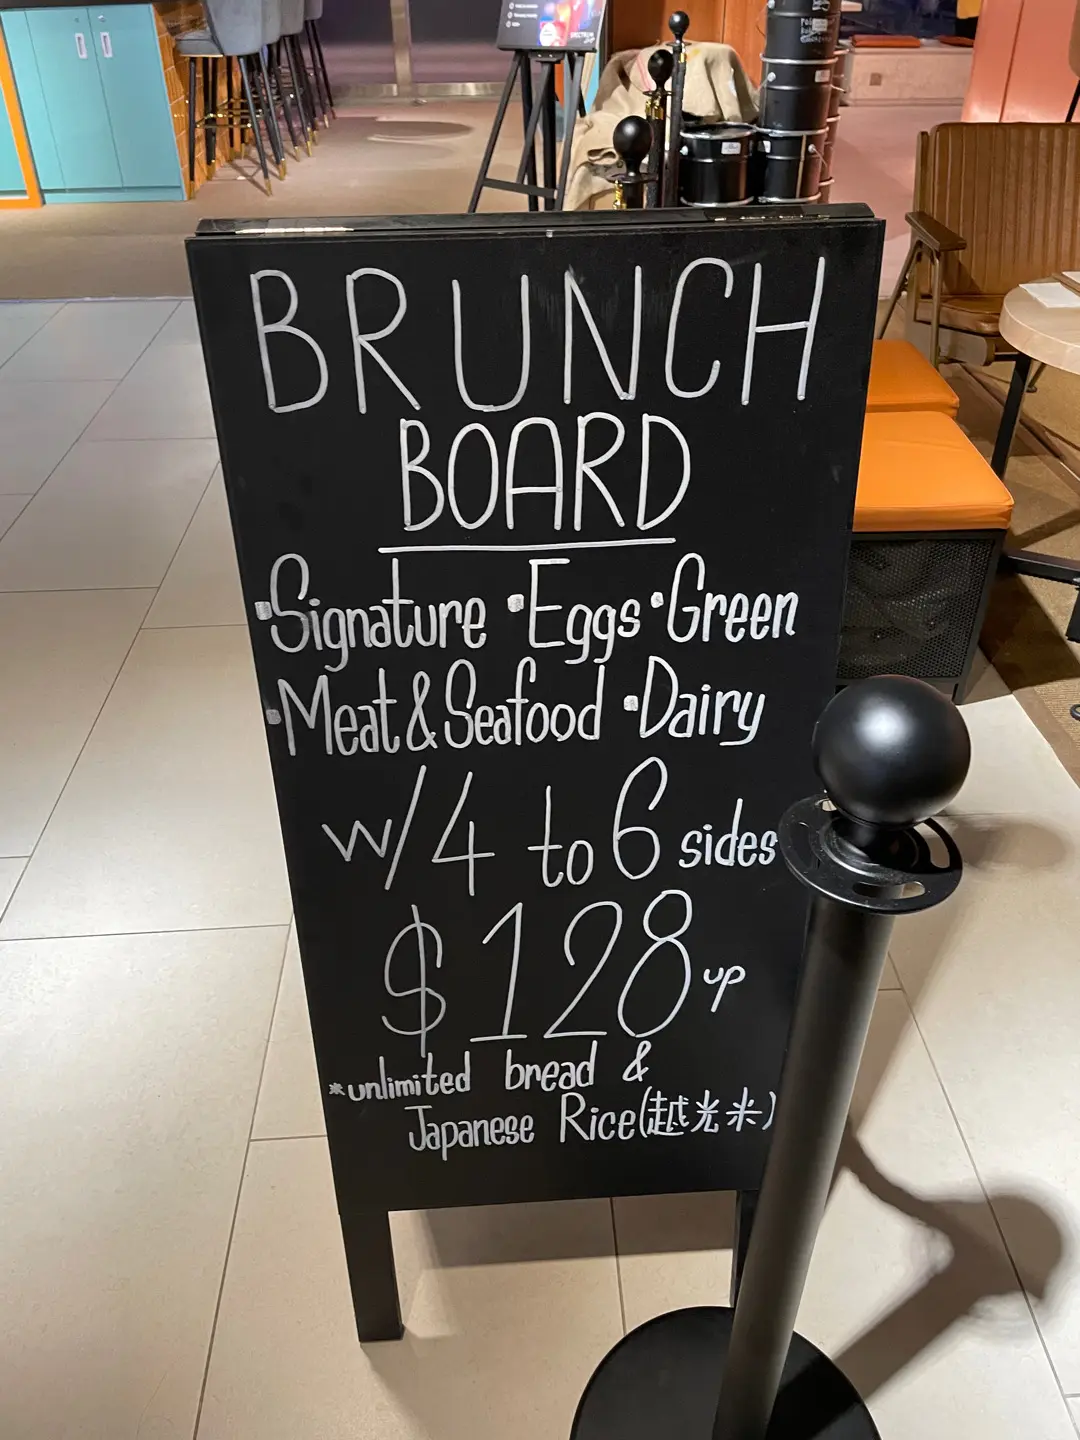 BRUNCH
BOARD
•Signature •Eggs •Green
•Meat & Seafood •Dairy
w/ 4 to 6 sides
$128 up
*unlimited bread &
Japanese Rice(越光米)